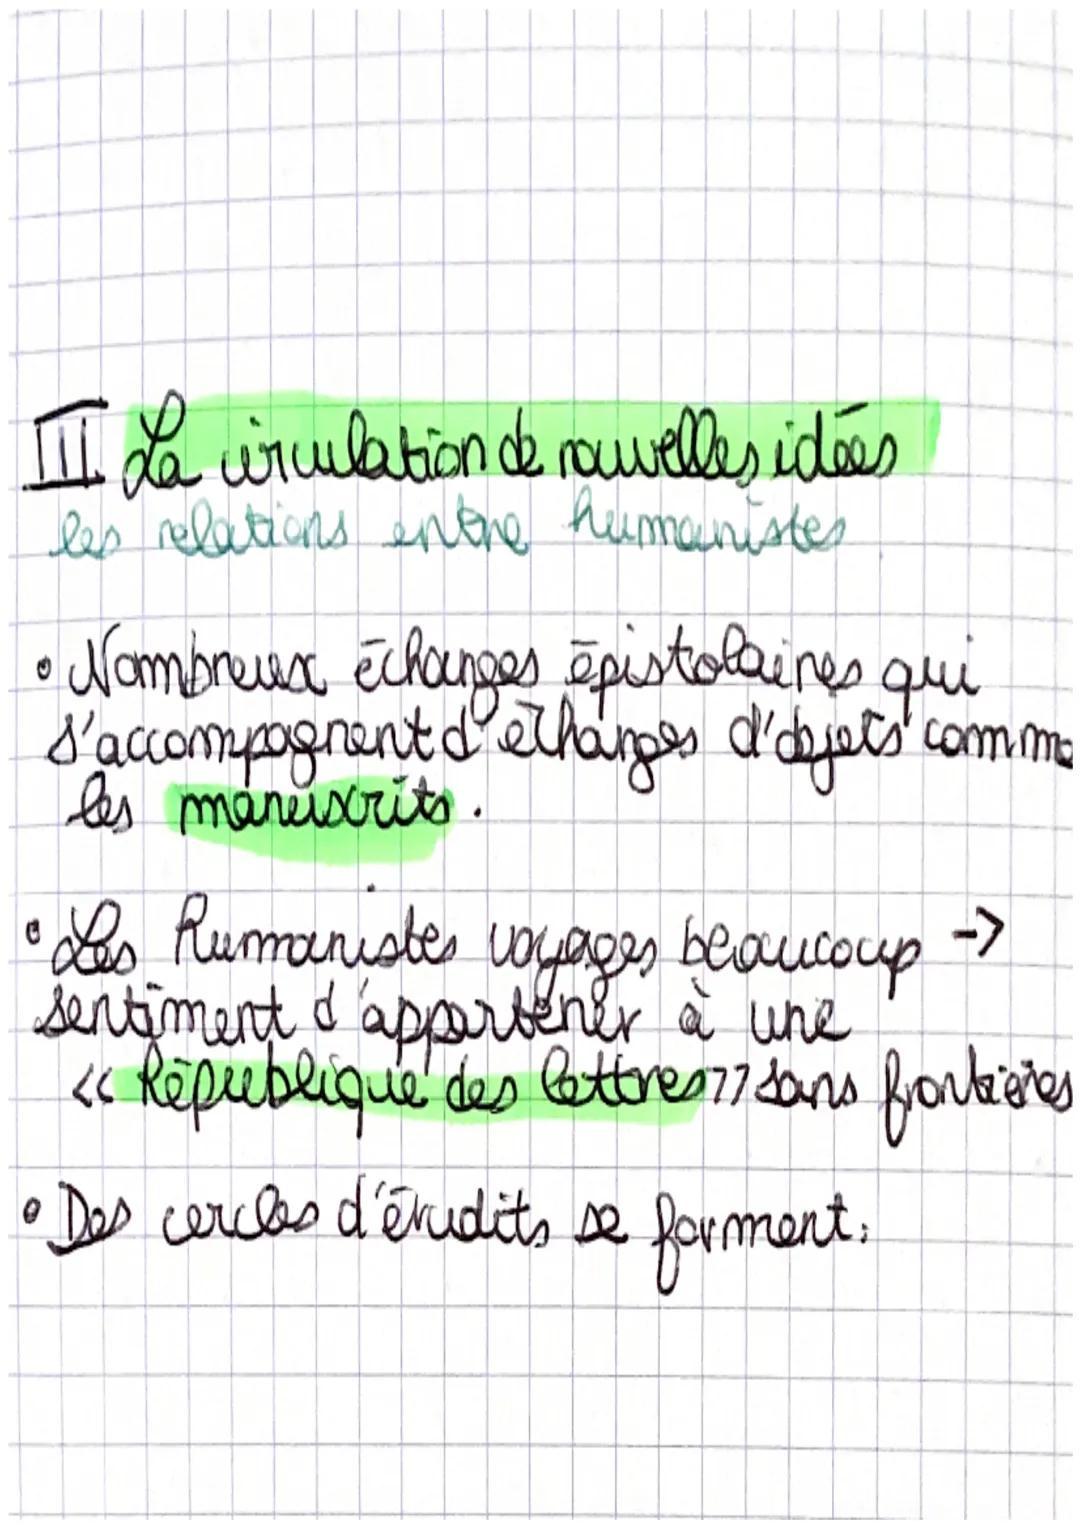 III La circulation de nouvelles idées
les relations entre humanistes
• Nombreux échanges épistolaires qui
s'accompagnent d'échanges d'objets comme
les manuscrits.
• Les humanistes voyages beaucoup ->
sentiment d'appartenir à une
<< République des lettres >> sans frontières
• Des cercles d'érudits se forment.